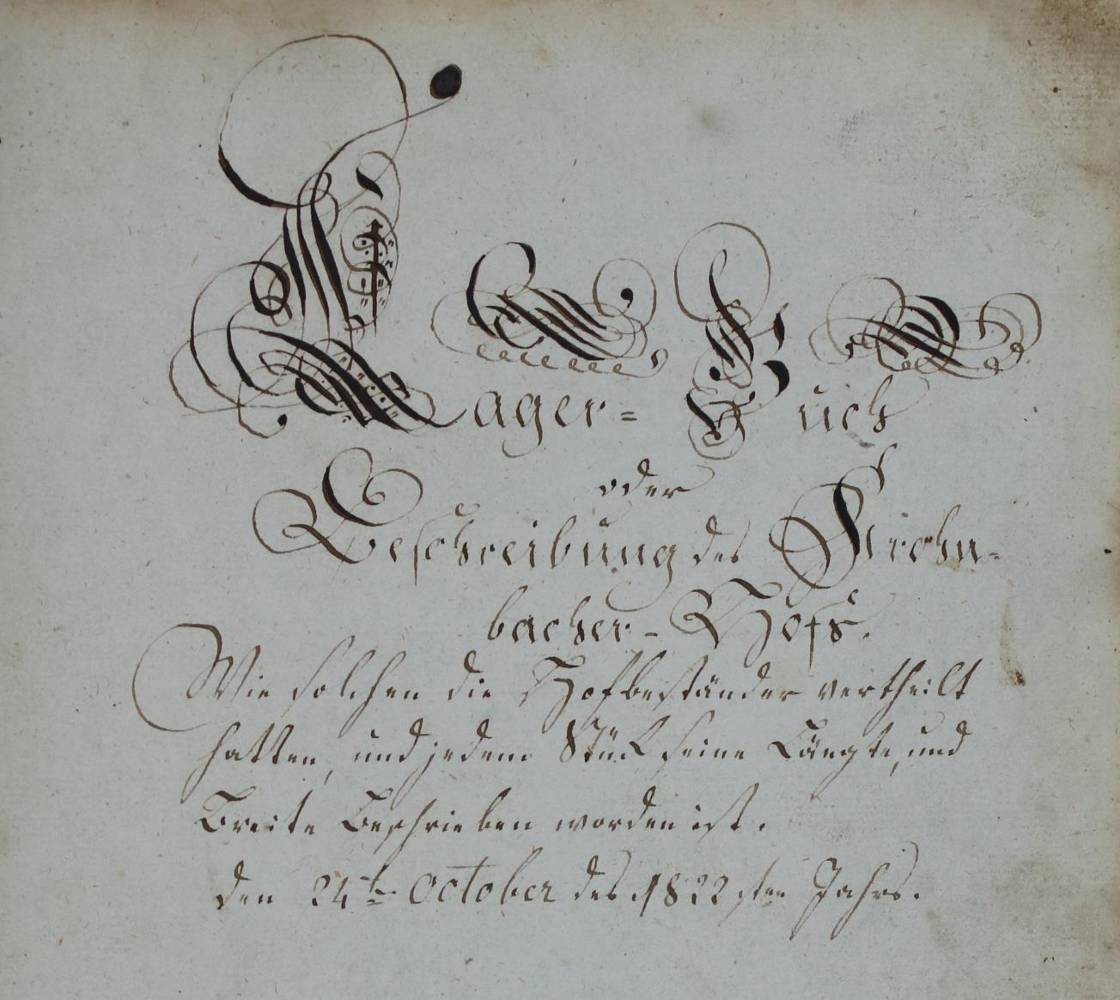 Lager= Buch
oder
Beschreibung des Strohn-
bacher-Hofs.
Wie solchen die Hofbeständer vertheilt
hatten, und jedem Stük seine Längte, und
Breite Beschrieben worden ist.
den 24t. October des 1822sten Jahrs.